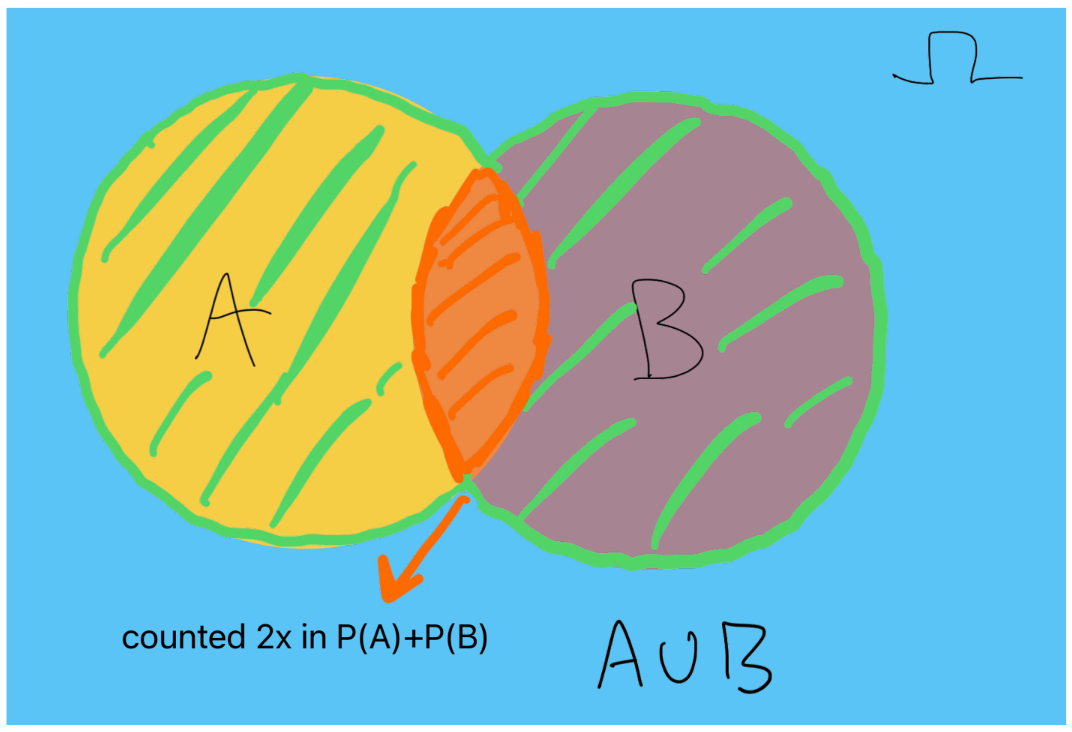 Ω
A
B
counted 2x in P(A)+P(B)
A∪B